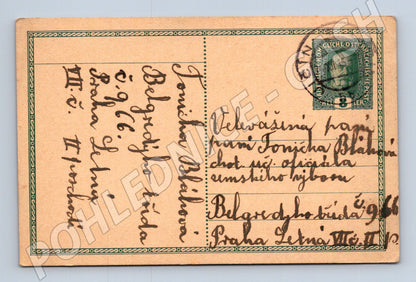 Tonička Bláhová
Belgrediho třída
č. 966.
Praha Letná
VII. č. II poschodí
Velevážená paní
paní Tonička Bláhová
choť uč. oficiála
zemského výboru
Belgrediho třída č. 966
Praha Letná VII č. II p.
8
POHLEDNICE - CASH